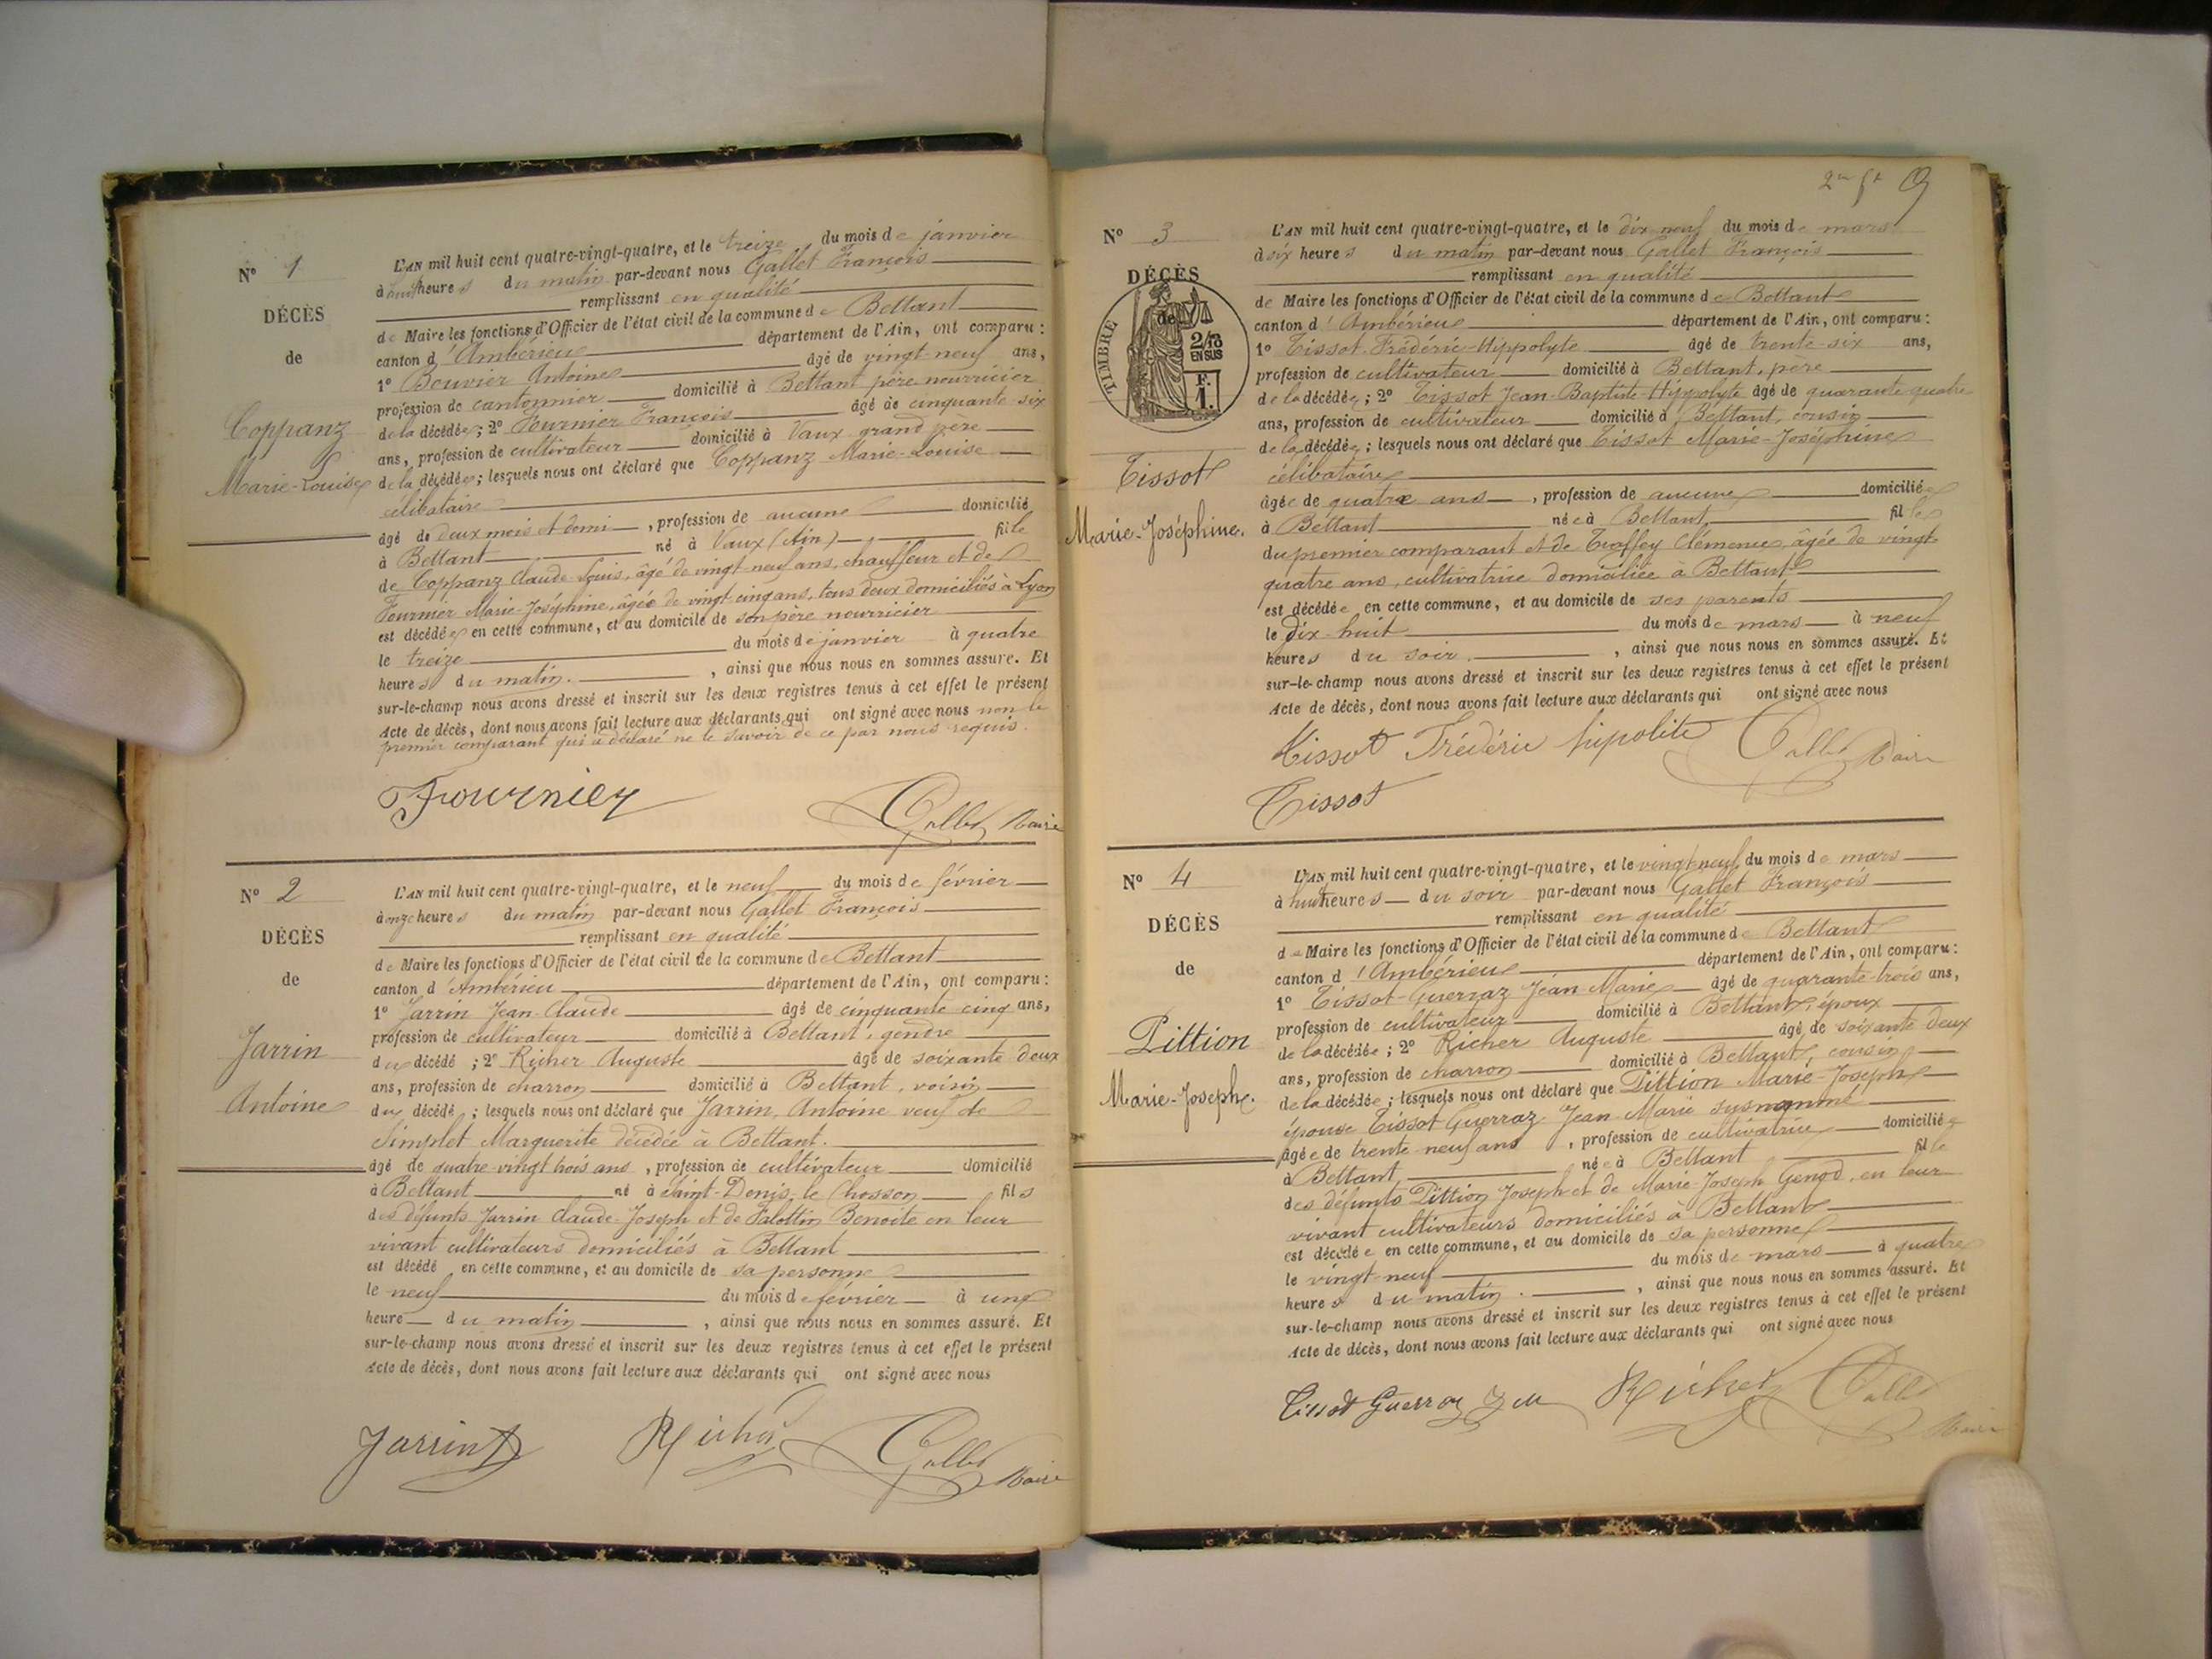 N° 1
DÉCÈS
de
Coppanz
Marie-Louise
L'AN mil huit cent quatre-vingt-quatre, et le treize du mois de janvier
à huit heures du matin par-devant nous Gallet François
remplissant en qualité
de Maire les fonctions d'Officier de l'état civil de la commune de Bettant
canton d'Ambérieu département de l'Ain, ont comparu :
1° Bouvier Antoine âgé de vingt-neuf ans,
profession de cantonnier domicilié à Bettant père nourricier
de la décédée ; 2° Fournier François âgé de cinquante-six
ans, profession de cultivateur domicilié à Vaux grand père
de la décédée ; lesquels nous ont déclaré que Coppanz Marie-Louise
célibataire
âgé de deux mois et demi, profession de aucune domicilié
à Bettant né à Vaux (Ain) fille
de Coppanz Claude-Louis, âgé de vingt-neuf ans, chauffeur et de
Fournier Marie-Joséphine, âgée de vingt-cinq ans, tous deux domiciliés à Lyon
est décédée en cette commune, et au domicile de son père nourricier
le treize du mois de janvier à quatre
heures du matin. , ainsi que nous nous en sommes assuré. Et
sur-le-champ nous avons dressé et inscrit sur les deux registres tenus à cet effet le présent
Acte de décès, dont nous avons fait lecture aux déclarants qui ont signé avec nous non le
premier comparant qui a déclaré ne le savoir de ce par nous requis.
Fournier Gallet Maire
N° 2
DÉCÈS
de
Jarrin
Antoine
L'AN mil huit cent quatre-vingt-quatre, et le neuf du mois de février
à onze heures du matin par-devant nous Gallet François
remplissant en qualité
de Maire les fonctions d'Officier de l'état civil de la commune de Bettant
canton d'Ambérieu département de l'Ain, ont comparu :
1° Jarrin Jean-Claude âgé de cinquante cinq ans,
profession de cultivateur domicilié à Bettant, gendre
du décédé ; 2° Richer Auguste âgé de soixante deux
ans, profession de charron domicilié à Bettant, voisin
du décédé ; lesquels nous ont déclaré que Jarrin, Antoine veuf de
Simplet Marguerite décédée à Bettant.
âgé de quatre-vingt trois ans, profession de cultivateur domicilié
à Bettant né à Saint-Denis-le Chosson fils
des défunts Jarrin Claude-Joseph et de Falottin Benoite en leur
vivant cultivateurs domiciliés à Bettant
est décédé en cette commune, et au domicile de sa personne
le neuf du mois de février à une
heure du matin , ainsi que nous nous en sommes assuré. Et
sur-le-champ nous avons dressé et inscrit sur les deux registres tenus à cet effet le présent
Acte de décès, dont nous avons fait lecture aux déclarants qui ont signé avec nous
Jarrin Richer Gallet Maire
N° 3
DÉCÈS
de
TIMBRE
2/10
EN SUS
F.
1.
Tissot
Marie-Joséphine.
L'AN mil huit cent quatre-vingt-quatre, et le dix-neuf du mois de mars
à six heures du matin par-devant nous Gallet François
remplissant en qualité
de Maire les fonctions d'Officier de l'état civil de la commune de Bettant
canton d'Ambérieu département de l'Ain, ont comparu :
1° Tissot Frédéric-Hippolyte âgé de trente-six ans,
profession de cultivateur domicilié à Bettant, père
de la décédée ; 2° Tissot Jean-Baptiste-Hippolyte âgé de quarante quatre
ans, profession de cultivateur domicilié à Bettant, cousin
de la décédée ; lesquels nous ont déclaré que Tissot Marie-Joséphine
célibataire
âgée de quatre ans, profession de aucune domiciliée
à Bettant née à Bettant, fille
du premier comparant et de Traffey Clémence, âgée de vingt-
quatre ans, cultivatrice domiciliée à Bettant
est décédée en cette commune, et au domicile de ses parents
le dix-huit du mois de mars à neuf
heures du soir. , ainsi que nous nous en sommes assuré. Et
sur-le-champ nous avons dressé et inscrit sur les deux registres tenus à cet effet le présent
Acte de décès, dont nous avons fait lecture aux déclarants qui ont signé avec nous
Tissot Frédéric hipolite Gallet Maire
Tissot
N° 4
DÉCÈS
de
Pittion
Marie-Joseph.
L'AN mil huit cent quatre-vingt-quatre, et le vingt-neuf du mois de mars
à huit heures du soir par-devant nous Gallet François
remplissant en qualité
de Maire les fonctions d'Officier de l'état civil de la commune de Bettant
canton d'Ambérieu département de l'Ain, ont comparu :
1° Tissot-Guerraz Jean-Marie âgé de quarante-trois ans,
profession de cultivateur domicilié à Bettant, époux
de la décédée ; 2° Richer Auguste âgé de soixante deux
ans, profession de charron domicilié à Bettant, cousin
de la décédée ; lesquels nous ont déclaré que Pittion Marie-Joseph
épouse Tissot Guerraz Jean-Marie susnommé
âgée de trente neuf ans, profession de cultivatrice domiciliée
à Bettant, née à Bettant fille
des défunts Pittion Joseph et de Marie-Joseph Genod, en leur
vivant cultivateurs domiciliés à Bettant
est décédée en cette commune, et au domicile de sa personne
le vingt-neuf du mois de mars à quatre
heures du matin. , ainsi que nous nous en sommes assuré. Et
sur-le-champ nous avons dressé et inscrit sur les deux registres tenus à cet effet le présent
Acte de décès, dont nous avons fait lecture aux déclarants qui ont signé avec nous
Tissot Guerraz J M Richer Gallet
Maire